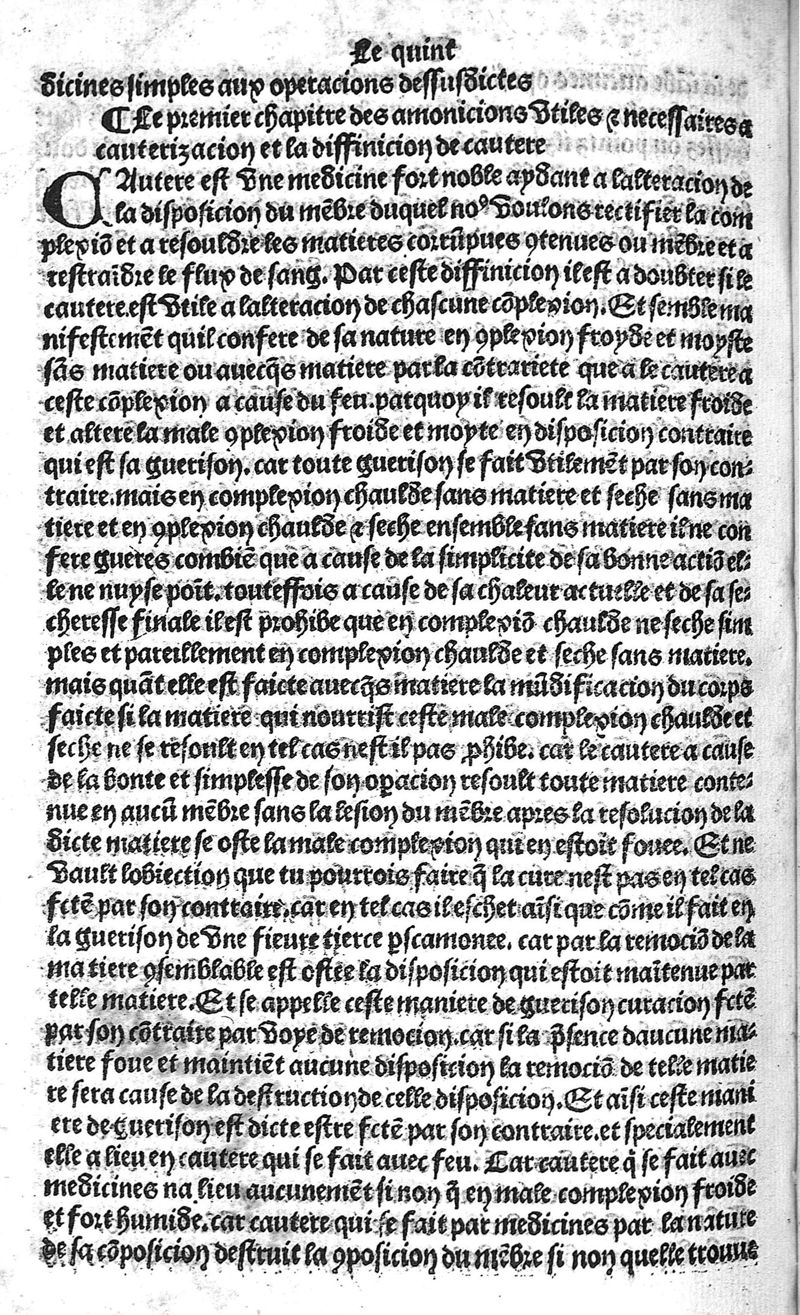 Le quint
dicines simples aux operacions dessusdictes
¶Le premier chapitre des amonicions vtiles ⁊ necessaires a
cauterizacion et la diffinicion de cautere
CAutere est vne medicine fort noble aydant a lalteracion de
la disposicion du mēbre duquel noꝰ voulons rectifier la com
plexiō et a resouldre les matieres corrūpues ꝯtenues ou mēbre et a
restraīdre le flux de sang. Par ceste diffinicion il est a doubter si le
cautere.est vtile a lalteracion de chascune cōplexion. Et semble ma
nifestement quil confere de sa nature en ꝯplexion froyde et moyste
sās matiere ou auecq̄s matiere par la cōtrariete que a le cautere a
ceste cōplexion a cause du feu.parquoy il resoult la matiere froide
et altere la male ꝯplexion froide et moyte en disposicion contraire
qui est sa guerison. car toute guerison se fait vtilemēt par son con⸗
traire.mais en complexion chaulde sans matiere et seche sans ma
tiere et en ꝯplexion chaulde ⁊ seche ensemble sans matiere il ne con
fere gueres combiē que a cause de la simplicite de sa bonne actiō el⸗
le ne nuyse poīt. touteffois a cause de sa chaleur actuelle et de sa se⸗
cheresse finale il est prohibe que en complexiō chaulde ne seche sim
ples et pareillement en complexion chaulde et seche sans matiere.
mais quāt elle est faicte auecq̄s matiere la mūdificacion du corps
faicte si la matiere qui nourrist ceste male complexion chaulde et
seche ne se resoult en tel cas nest il pas ꝓhibe. car le cautere a cause
de la bonte et simplesse de son oꝑacion resoult toute matiere conte⸗
nue en aucū mēbre sans la lesion du mēbre apres la resolucion de la
dicte matiere se oste la male complexion qui en estoit fouee. Et ne
vault lobiection que tu pourrois faire q̄ la cure nest pas en tel cas
fctē par son contraire, car en tel cas il eschet aīsi que cōme il fait en
la guerison de vne fieure tierce ꝑ scamonee. car par la remociō de la
matiere ꝯsemblable est ostee la disposicion qui estoit maītenue par
telle matiere. Et se appelle ceste maniere de guerison curacion fctē
par son cōtraire par voye de remocion.car si la p̄sence daucune ma⸗
tiere foue et maintiēt aucune disposicion la remociō de telle matie
re sera cause de la destruction de celle disposicion. Et aīsi ceste mani
ere de guerison est dicte estre fctē par son contraire.et specialement
elle a lieu en cautere qui se fait auec feu. Car cautere q̄ se fait auec
medicines na lieu aucunement si non q̄ en male complexion froide
et fort humide.car cautere qui se fait par medicines par la nature
de sa cōposicion destruit la ꝯposicion du mēbre si non quelle trouue